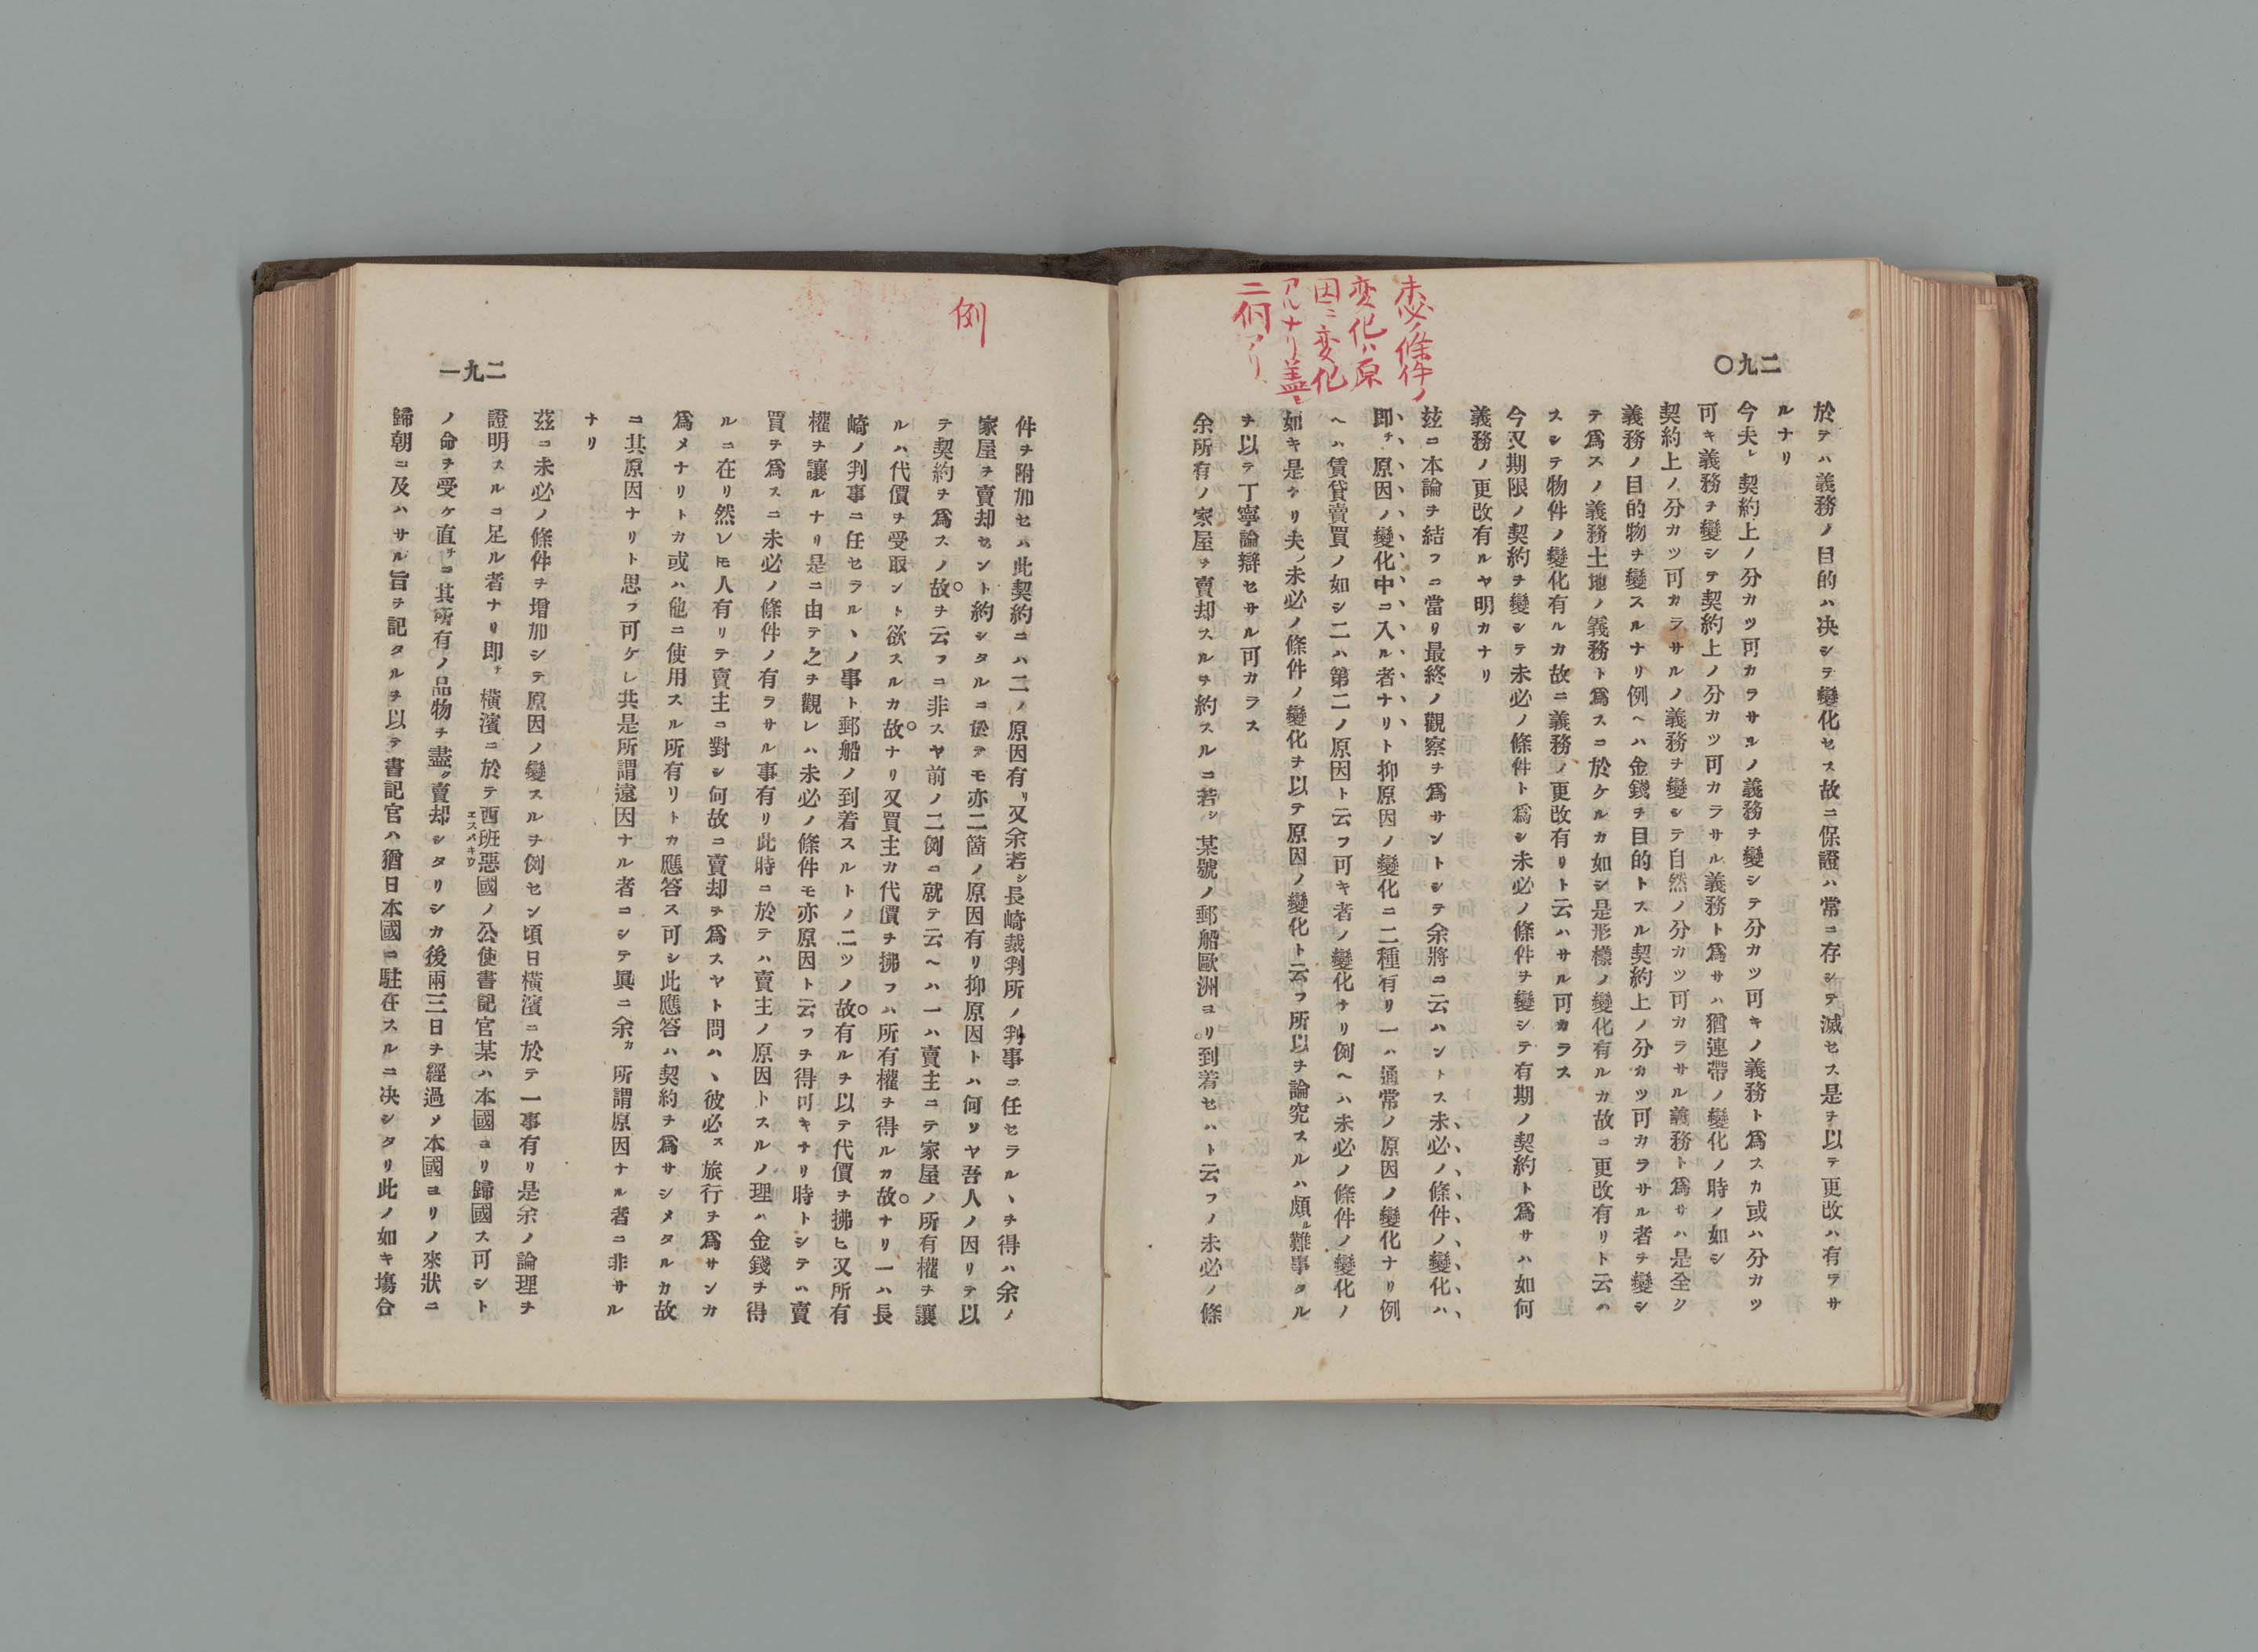 二九〇
未必ノ條件ノ
変化ハ原
因ニ変化
アルナリ蓋シ
二例アリ
於テハ義務ノ目的ハ决シテ變化セス故ニ保證ハ常ニ存シテ滅セス是ヲ以テ更改ハ有ラサ
ルナリ
今夫レ契約上ノ分カツ可カラサルノ義務ヲ變シテ分カツ可キノ義務ト爲スカ或ハ分カツ
可キ義務ヲ變シテ契約上ノ分カツ可カラサル義務ト爲サハ猶連帶ノ變化ノ時ノ如シ
契約上ノ分カツ可カラサルノ義務ヲ變シテ自然ノ分カツ可カラサル義務ト爲サハ是全ク
義務ノ目的物ヲ變スルナリ例ヘハ金錢ヲ目的トスル契約上ノ分カツ可カラサル者ヲ變シ
テ爲スノ義務土地ノ義務ト爲スニ於ケルカ如シ是形樣ノ變化有ルカ故ニ更改有リト云ハ
スシテ物件ノ變化有ルカ故ニ義務ノ更改有リト云ハサル可カラス
今又期限ノ契約ヲ變シテ未必ノ條件ト爲シ未必ノ條件ヲ變シテ有期ノ契約ト爲サハ如何
義務ノ更改有ルヤ明カナリ
玆ニ本論ヲ結フニ當リ最終ノ觀察ヲ爲サントシテ余將ニ云ハントス未必ノ條件ノ變化ハ
即チ原因ノ變化中ニ入ル者ナリト抑原因ノ變化ニ二種有リ一ハ通常ノ原因ノ變化ナリ例
ヘハ賃貸賣買ノ如シ二ハ第二ノ原因ト云フ可キ者ノ變化ナリ例ヘハ未必ノ條件ノ變化ノ
如キ是ナリ夫ノ未必ノ條件ノ變化ヲ以テ原因ノ變化ト云フ所以ヲ論究スルハ頗ル難事タル
ヲ以テ丁寧論辯セサル可カラス
余所有ノ家屋ヲ賣却スルヲ約スルニ若シ某號ノ郵船歐洲ヨリ到着セハト云フノ未必ノ條
二九一
例
件ヲ附加セハ此契約ニハ二ノ原因有リ又余若シ長崎裁判所ノ判事ニ任セラルヽヲ得ハ余ノ
家屋ヲ賣却セント約シタルニ於テモ亦二箇ノ原因有リ抑原因トハ何ソヤ吾人ノ因リテ以
テ契約ヲ爲スノ故ヲ云フニ非スヤ前ノ二例ニ就テ云ヘハ一ハ賣主ニテ家屋ノ所有權ヲ讓
ルハ代價ヲ受取ント欲スルカ故ナリ又買主カ代價ヲ拂フハ所有權ヲ得ルカ故ナリ一ハ長
崎ノ判事ニ任セラルヽノ事ト郵船ノ到着スルトノ二ツノ故有ルヲ以テ代價ヲ拂ヒ又所有
權ヲ讓ルナリ是ニ由テ之ヲ觀レハ未必ノ條件モ亦原因ト云フヲ得可キナリ時トシテハ賣
買ヲ爲スニ未必ノ條件ノ有ラサル事有リ此時ニ於テハ賣主ノ原因トスルノ理ハ金錢ヲ得
ルニ在リ然レ𪜈人有リテ賣主ニ對シ何故ニ賣却ヲ爲スヤト問ハヽ彼必ス旅行ヲ爲サンカ
爲メナリトカ或ハ他ニ使用スル所有リトカ應答ス可シ此應答ハ契約ヲ爲サシメタルカ故
ニ其原因ナリト思フ可ケレ共是所謂遠因ナル者ニシテ眞ニ余カ所謂原因ナル者ニ非サル
ナリ
茲ニ未必ノ條件ヲ增加シテ原因ノ變スルヲ例セン頃日橫濱ニ於テ一事有リ是余ノ論理ヲ
證明スルニ足ル者ナリ即チ橫濱ニ於テ西班惡國ノ公使書記官某ハ本國ヨリ歸國ス可シト
ノ命ヲ受ケ直チニ其所有ノ品物ヲ盡ク賣却シタリシカ後兩三日ヲ經過シ本國ヨリノ來狀ニ
歸朝ニ及ハサル旨ヲ記タルヲ以テ書記官ハ猶日本國ニ駐在スルニ决シタリ此ノ如キ塲合